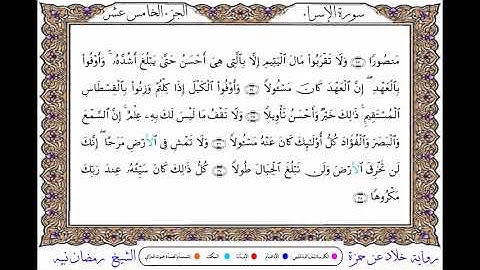 سورة الإسراء الجزء الخامس عشر
مَنصُورًا ۝ وَلَا تَقْرَبُوا۟ مَالَ ٱلْيَتِيمِ إِلَّا بِٱلَّتِى هِىَ أَحْسَنُ حَتَّىٰ يَبْلُغَ أَشُدَّهُۥ ۚ وَأَوْفُوا۟
بِٱلْعَهْدِ ۖ إِنَّ ٱلْعَهْدَ كَانَ مَسْـُٔولًا ۝ وَأَوْفُوا۟ ٱلْكَيْلَ إِذَا كِلْتُمْ وَزِنُوا۟ بِٱلْقِسْطَاسِ
ٱلْمُسْتَقِيمِ ۚ ذَٰلِكَ خَيْرٌ وَأَحْسَنُ تَأْوِيلًا ۝ وَلَا تَقْفُ مَا لَيْسَ لَكَ بِهِۦ عِلْمٌ ۚ إِنَّ ٱلسَّمْعَ
وَٱلْبَصَرَ وَٱلْفُؤَادَ كُلُّ أُو۟لَٰٓئِكَ كَانَ عَنْهُ مَسْـُٔولًا ۝ وَلَا تَمْشِ فِى ٱلْأَرْضِ مَرَحًا ۖ إِنَّكَ
لَن تَخْرِقَ ٱلْأَرْضَ وَلَن تَبْلُغَ ٱلْجِبَالَ طُولًا ۝ كُلُّ ذَٰلِكَ كَانَ سَيِّئُهُۥ عِندَ رَبِّكَ
مَكْرُوهًا
رواية خلاد عن حمزة الشيخ رمضان نبيه